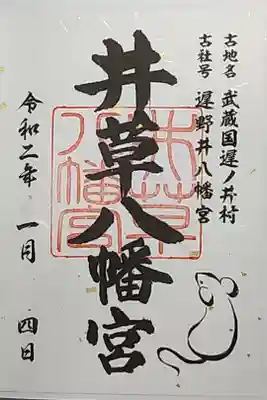 古地名 武蔵国遅ノ井村
古社号 遅野井八幡宮
井草八幡宮
令和二年 一月 四日
井草八幡宮